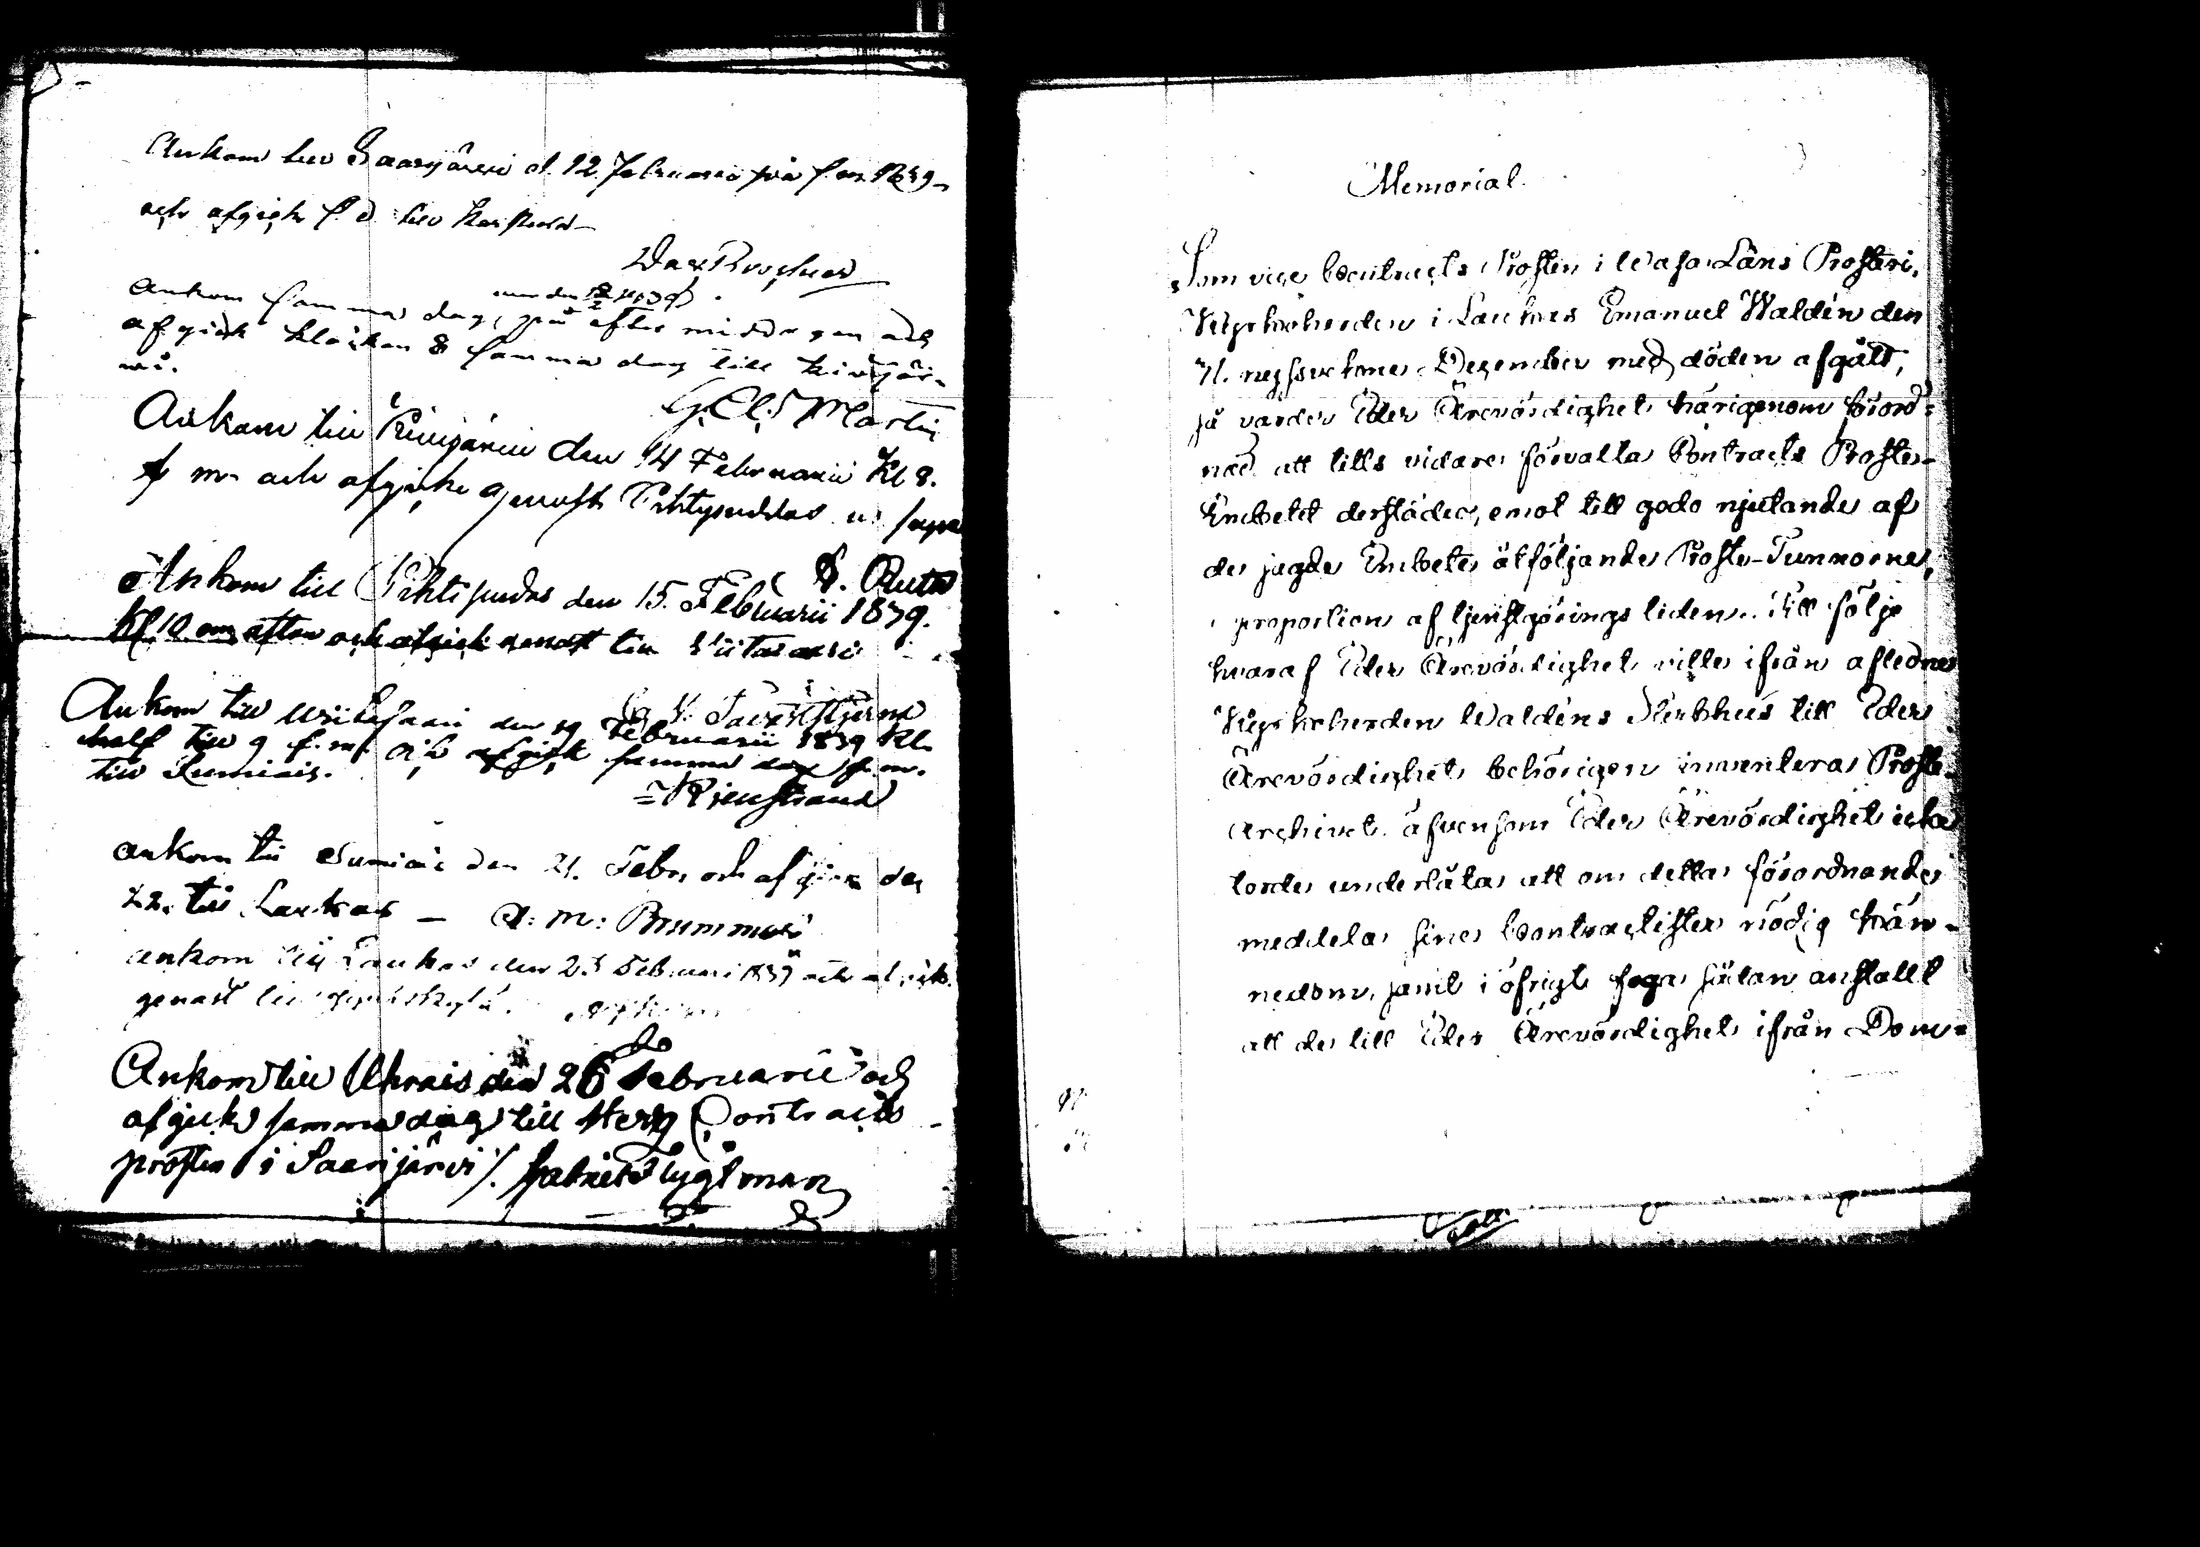 Ankom till Saarijärvi d. 12 Februarii på f.m. 1839
och afgick s. d. till Karstula
Ankom samma dag, på efter middagen och
afgick klåckan 8 samma dag till Kivijär-
vi.
G. El: Martin
Ankom till Kivijärvi den 14 Februarii Kl 8.
f m. och afgick genast Pihtipudas
Ankom till Pihtipudas den 15. Februarii 1839.
Kl 10 om afton och afgick genast till Viitasaari
Ankom till Wiitasaari den 19 Februarii 1839 Kl.
half till 9 f.m. och afgick samma dag f.m.
till Sumiais.
Ankom till Sumiais den 21. Febr. och afgick den
22. till Laukas — A: M: Brummer
ankom till Laukas den 23 Februari 1839 och afgick
genast till
Ankom till Uhrais den 26 Februarii och
afgick samma dag till Herr Contracts
prosten i Saarijärvi /. Gabriel Flygtman
Memorial.
Som vice Contracts Prosten i Wasa Läns Prosteri,
Kyrkoherden i Laukas Emanuel Waldén den
31. nästvekne December med döden afgått,
så varder Eder Ärevördighet härigenom förord-
nad att tills vidare förvalta Contracts Proste-
Embetet derstädes, emot till godo njutande af
de sagde Embete åtföljande Proste-Tunnorne,
i proportion af tjenstgörings tiden. Till följe
hvaraf Eder Ärevördighet ville ifrån aflednes
Kyrkoherden Waldéns Sterbhus till Eder
Ärevördighet behörigen inventera Proste-
Archivet, äfvensom Eder Ärevördighet icke
torde underlåta att om detta förordnande
meddela sine Contractister nödig kän-
nedom, samt i öfrigt foga sådan anstallt
att de till Eder Ärevördighet ifrån Dom-